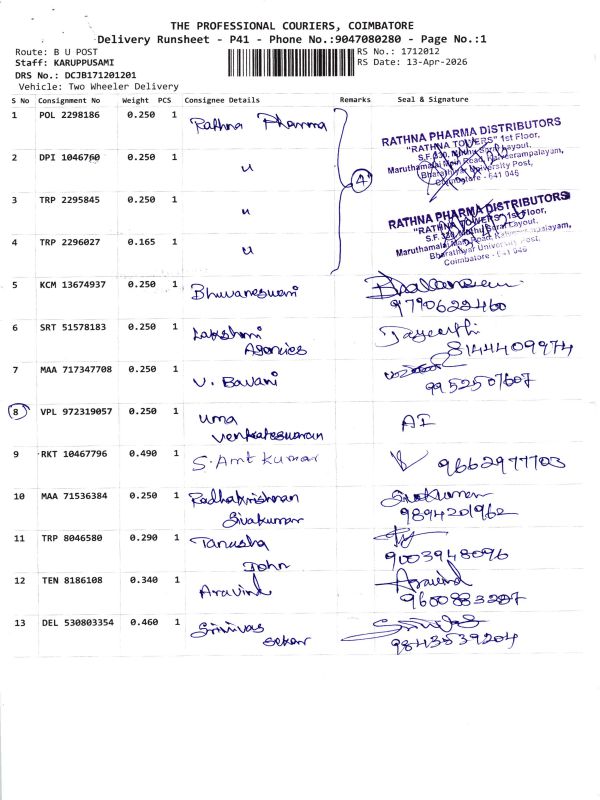 THE PROFESSIONAL COURIERS, COIMBATORE
Delivery Runsheet - P41 - Phone No.:9047080280 - Page No.:1
Route: B U POST
RS No.: 1712012
Staff: KARUPPUSAMI
RS Date: 13-Apr-2026
DRS No.: DCJB171201201
Vehicle: Two Wheeler Delivery
S No Consignment No Weight PCS Consignee Details Remarks Seal & Signature
1 POL 2298186 0.250 1 Rathna Pharma
RATHNA PHARMA DISTRIBUTORS
"RATHNA TOWERS" 1st Floor,
Bharathiyar University Post,
Coimbatore - 641 046
2 DPI 1046760 0.250 1 u
4
3 TRP 2295845 0.250 1 u
RATHNA PHARMA DISTRIBUTORS
"RATHNA TOWERS" 1st Floor,
4 TRP 2296027 0.165 1 u
Bharathiyar University Post,
Coimbatore - 641 046
5 KCM 13674937 0.250 1 Bhuvaneswari
9790622460
6 SRT 51578183 0.250 1 Lakshmi
Agencies
8144409974
7 MAA 717347708 0.250 1 V. Bavani
9952507607
8 VPL 972319057 0.250 1 uma
venkateswaran
9 RKT 10467796 0.490 1 S. Amt kumar 9662977703
10 MAA 71536384 0.250 1 Radhakrishnan Sivakumar
Sivakumar 9894201962
11 TRP 8046580 0.290 1 Tanusha
John 9003948096
12 TEN 8186108 0.340 1 Aravind Aravind
9600883287
13 DEL 530803354 0.460 1 Srinivas
Sekar 9843539204